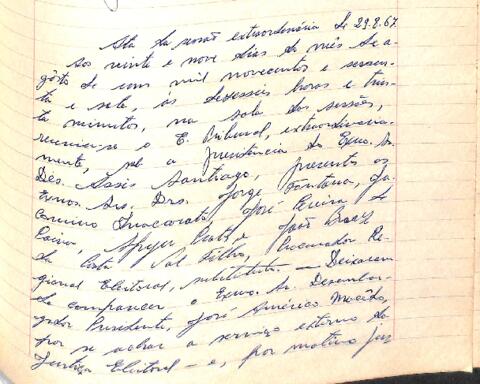 Ata da sessão extraordinária de 29.8.67.
Aos vinte e nove dias do mês de a-
gôsto de um mil novecentos e sessen-
ta e sete, às dezesseis horas e trin-
ta minutos, na sala das sessões,
reuniu-se o E. Tribunal, extraordinaria-
mente, sob a presidência do Exmo. Sr.
Des. Assis Santiago, presentes os
Exmos. Srs. Drs. Jorge Fontana, Ja-
José Vieira de
Paiva, e João Braz
da Costa Val Filho, Procurador Re-
gional Eleitoral, substituto. — Deixaram
de comparecer o Exmo. Sr. Desembar-
gador Presidente, José Américo Macêdo,
por se achar a serviço externo da
Justiça Eleitoral — e, por motivo jus